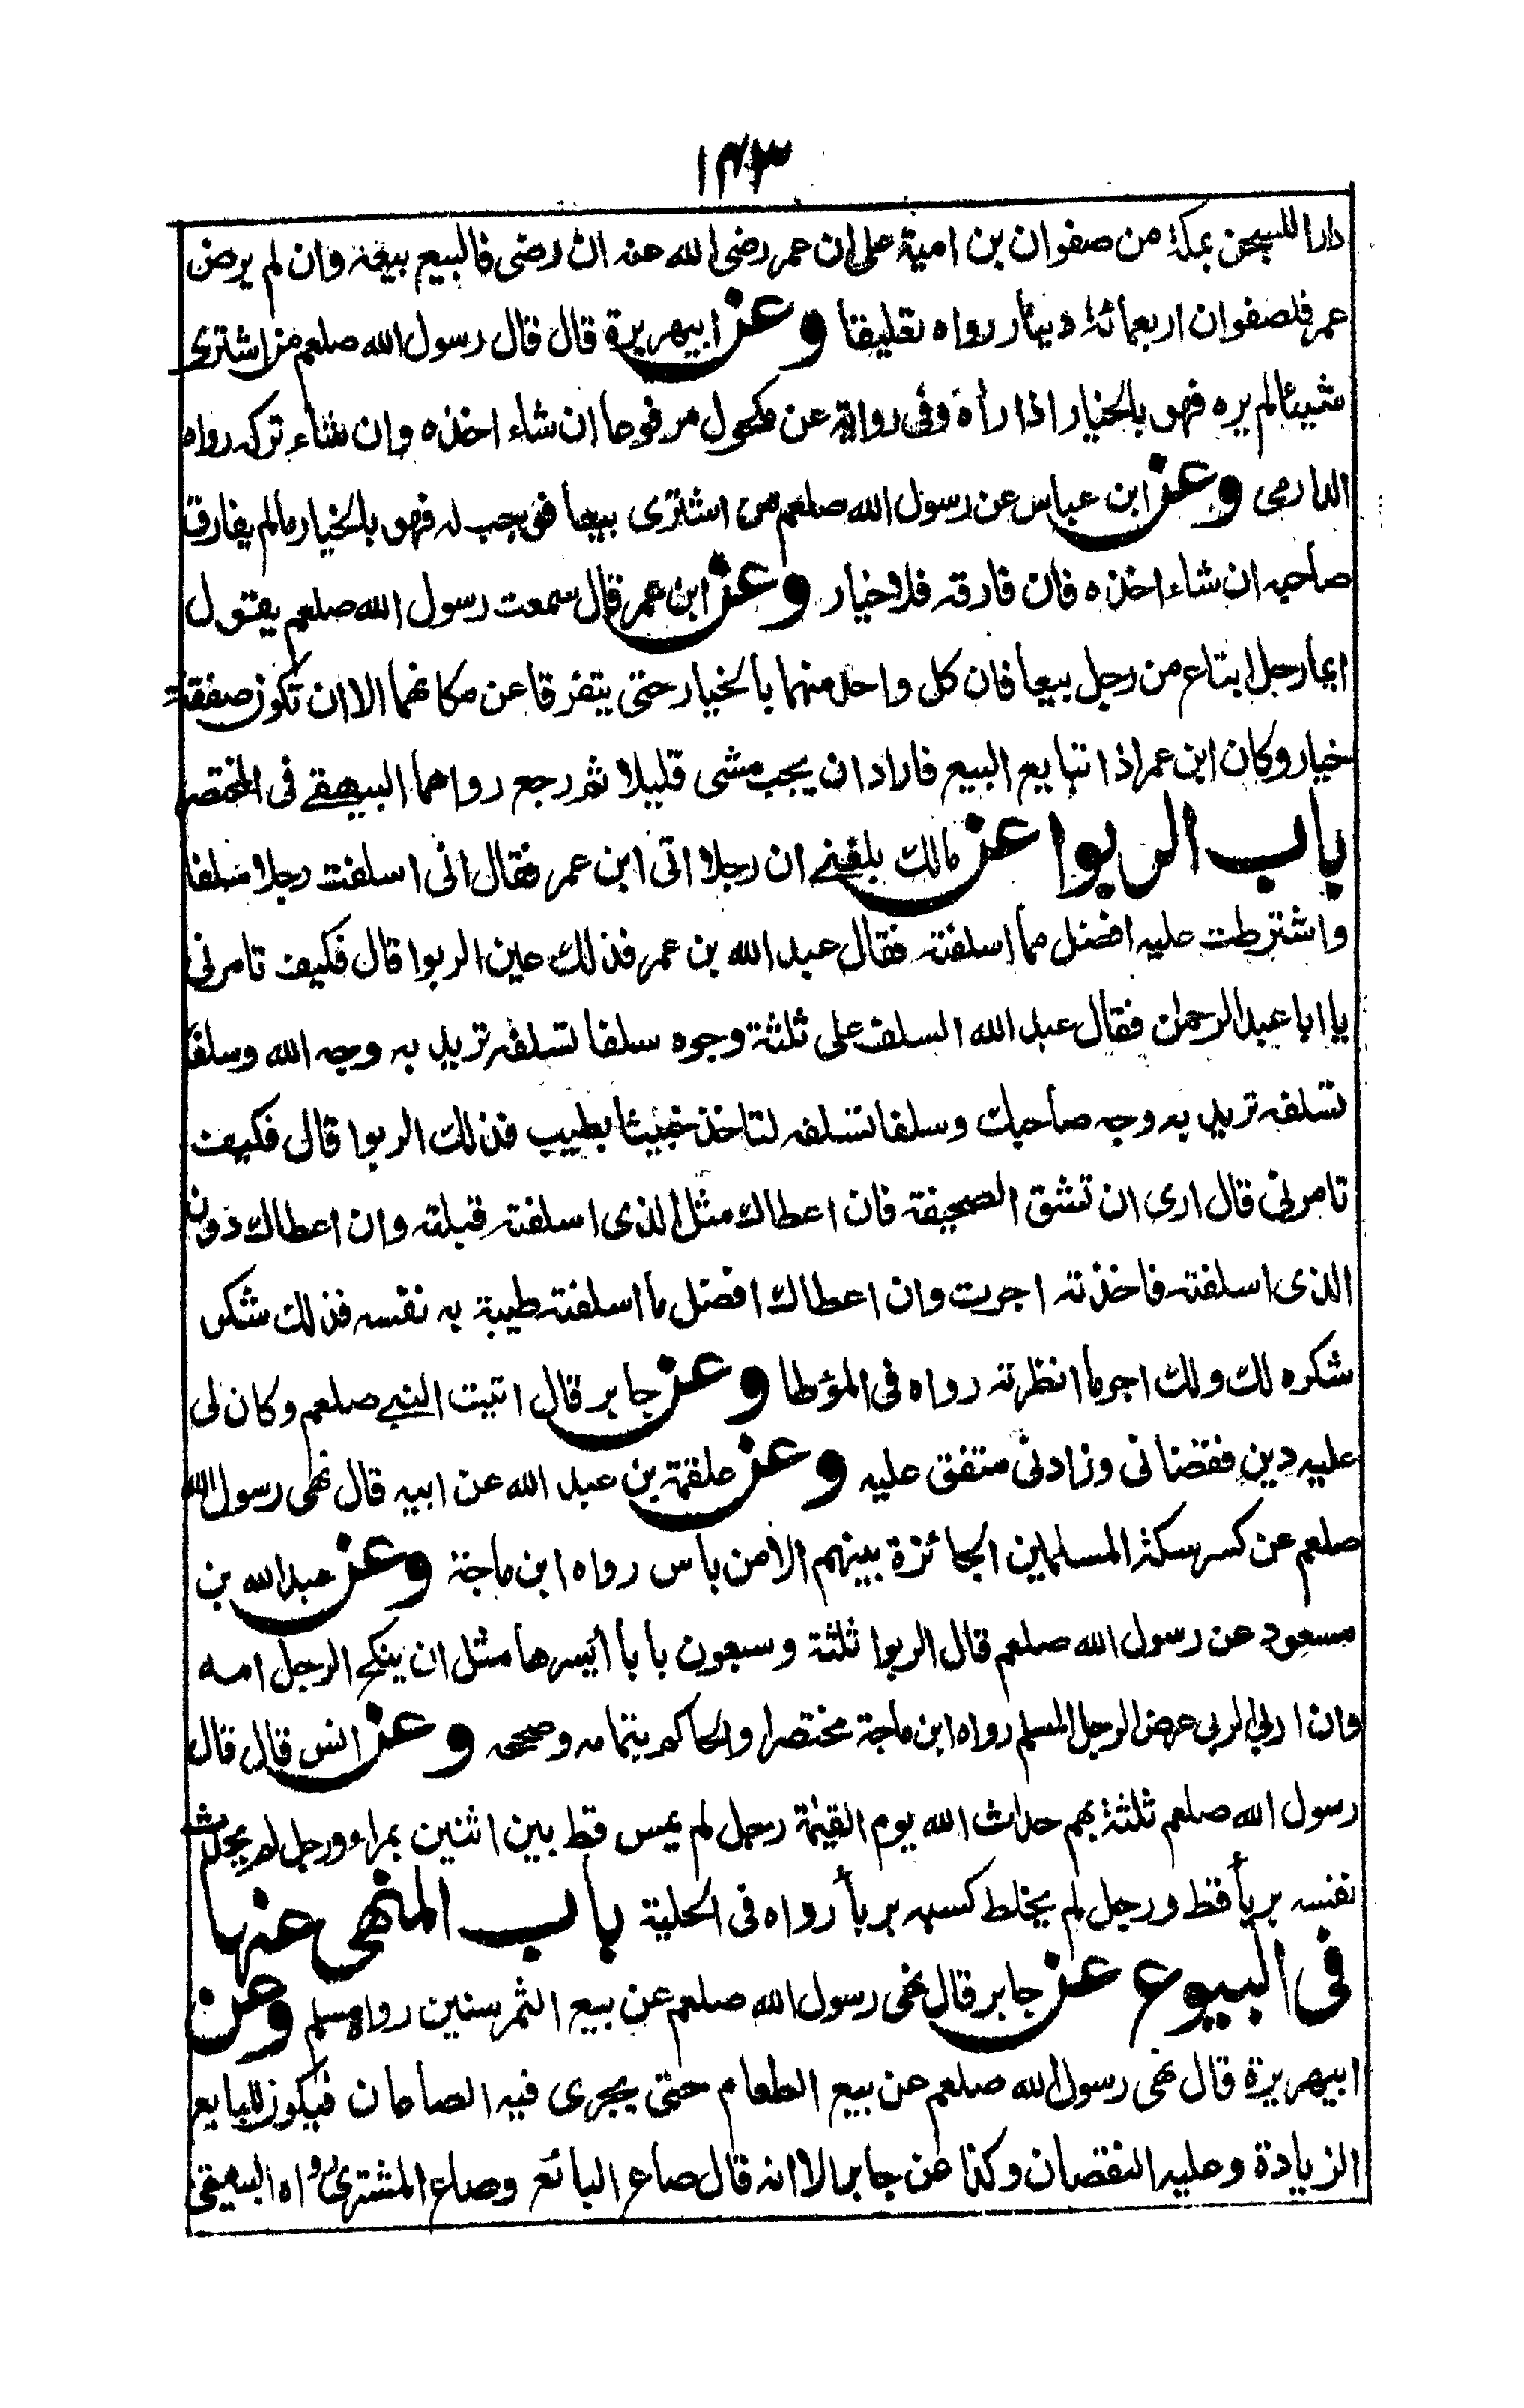 ١٤٣
دارا للسجن بمكة من صفوان بن امية على ان عمر رضى الله عنه ان رضى فالبيع بيعه وان لم يرض
عمر فلصفوان اربعمائة دينار رواه تعليقا وعن ابيهريرة قال قال رسول الله صلعم من اشترى
شيئا لم يره فهو بالخيار اذا رأه وفى رواية عن مكحول مرفوعا ان شاء اخذه وان شاء تركه رواه
الدارمى وعن ابن عباس عن رسول الله صلعم من اشترى بيعا فوجب له فهو بالخيار مالم يفارق
صاحبه ان شاء اخذه فان فارقه فلا خيار وعن ابن عمر قال سمعت رسول الله صلعم يقول
ايما رجل ابتاع من رجل بيعا فان كل واحد منهما بالخيار حتى يتفرقا عن مكانهما الا ان تكون صفقة
خيار وكان ابن عمر اذا تبايع البيع فاراد ان يجب مشى قليلا ثم رجع رواهما البيهقے فى المختصر
باب الربوا عن مالك بلغنے ان رجلا اتى ابن عمر فقال انى اسلفت رجلا سلفا
واشترطت عليه افضل مما اسلفته فقال عبد الله بن عمر فذلك عين الربوا قال فكيف تامرنى
يا ابا عبد الرحمن فقال عبد الله السلف على ثلثة وجوه سلفا تسلفه تريد به وجه الله وسلفا
تسلفه تريد به وجه صاحبك وسلفا تسلفه لتاخذ خبيثا بطيب فذلك الربوا قال فكيف
تامرنى قال ارى ان تشق الصحيفة فان اعطاك مثل الذى اسلفته قبلته وان اعطاك دون
الذى اسلفته فاخذته اجرت وان اعطاك افضل ما اسلفته طيبة به نفسه فذلك شكر
شكره لك ولك اجر ما انظرته رواه فى المؤطا وعن جابر قال اتيت النبے صلعم وكان لى
عليه دين فقضانى وزادنى متفق عليه وعن علقمة بن عبد الله عن ابيه قال نهى رسول الله
صلعم عن كسر سكة المسلمين الجائزة بينهم الا من باس رواه ابن ماجة وعن عبد الله بن
مسعود عن رسول الله صلعم قال الربوا ثلثة وسبعون بابا أيسرها مثل ان ينكح الرجل امه
وان اربى الربى عرض الرجل المسلم رواه ابن ماجة مختصرا والحاكم بتمامه وصححه وعن انس قال قال
رسول الله صلعم ثلثة هم حداث الله يوم القيمة رجل لم يمس قط بين اثنين بمراء ورجل لم يحدث
نفسه بربا قط ورجل لم يخلط كسبه بربا رواه فى الحلية باب المنهى عنها
فى البيوع عن جابر قال نهى رسول الله صلعم عن بيع الثمر سنين رواه مسلم وعن
ابيهريرة قال نهى رسول الله صلعم عن بيع الطعام حتى يجرى فيه الصاعان فيكون للبايع
الزيادة وعليه النقصان وكذا عن جابر الا انه قال صاع البائع وصاع المشترى رواه البيهقى